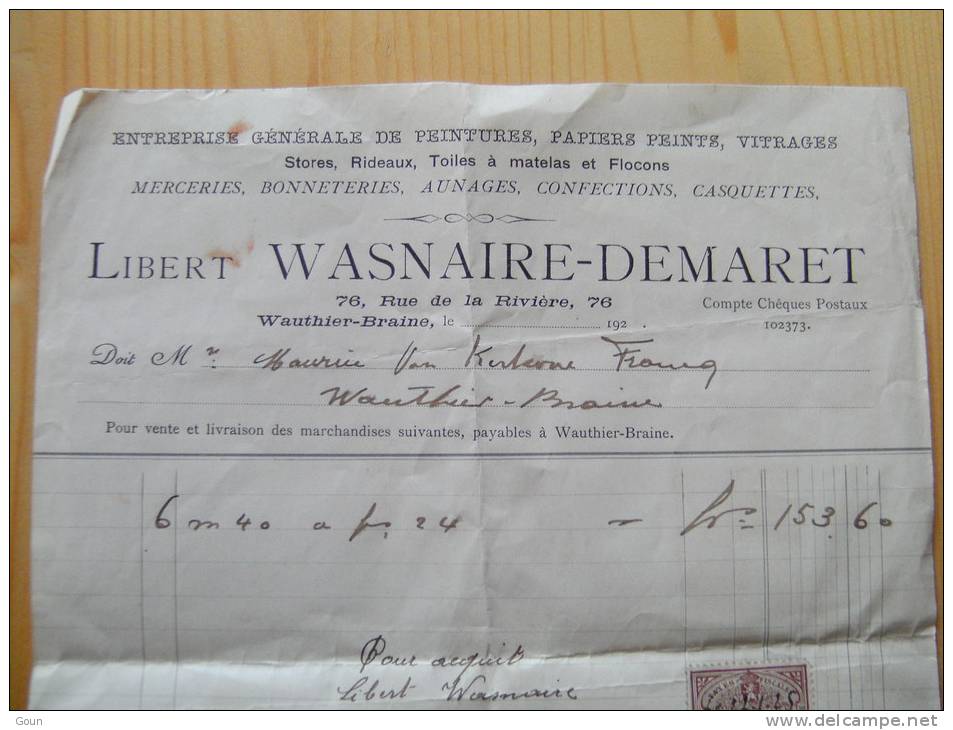 ENTREPRISE GÉNÉRALE DE PEINTURES, PAPIERS PEINTS, VITRAGES
Stores, Rideaux, Toiles à matelas et Flocons
MERCERIES, BONNETERIES, AUNAGES, CONFECTIONS, CASQUETTES,
LIBERT WASNAIRE-DEMARET
76, Rue de la Rivière, 76
Compte Chêques Postaux
Wauthier-Braine, le 192 .
102373.
Doit Mr. Maurice Van
Wauthier-Braine
Pour vente et livraison des marchandises suivantes, payables à Wauthier-Braine.
6 m 40 a fr. 24 - frs 153.60
Pour acquit
Libert Wasnaire
Goun
www.delcampe.net